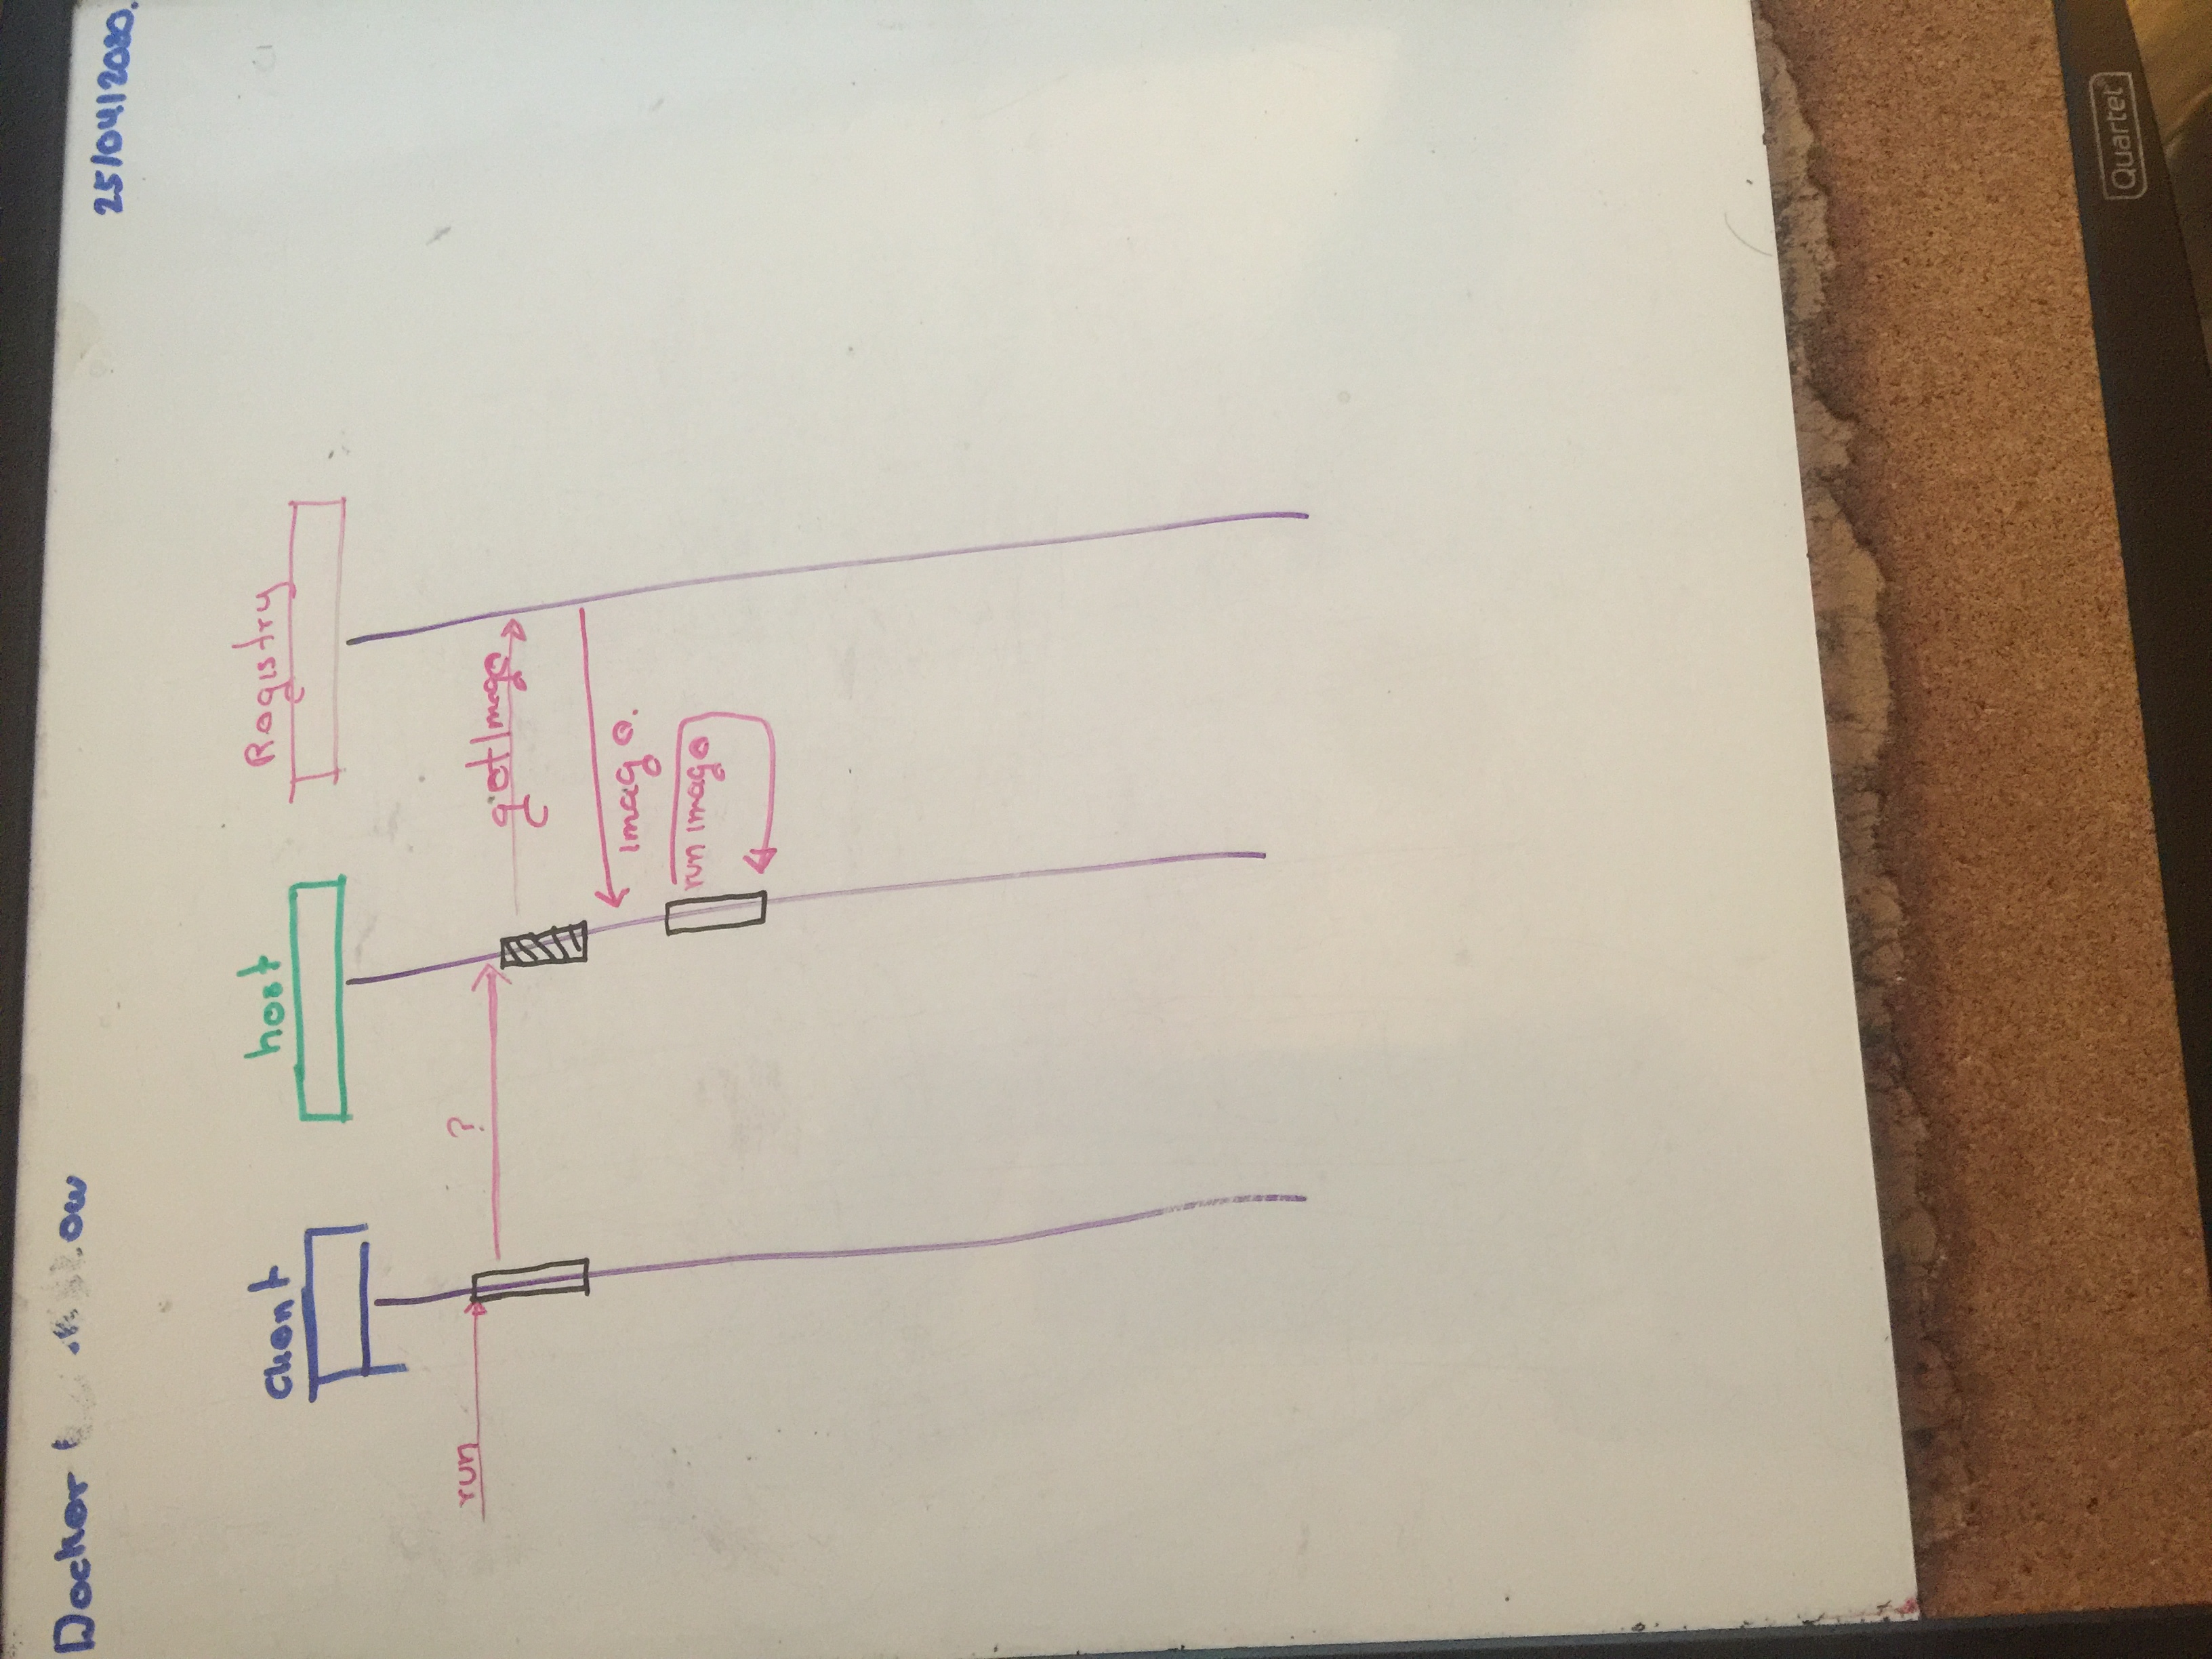 Docker
25/04/2020.
Client
host
Registry
run
?
getImage
image.
run image
Quartet